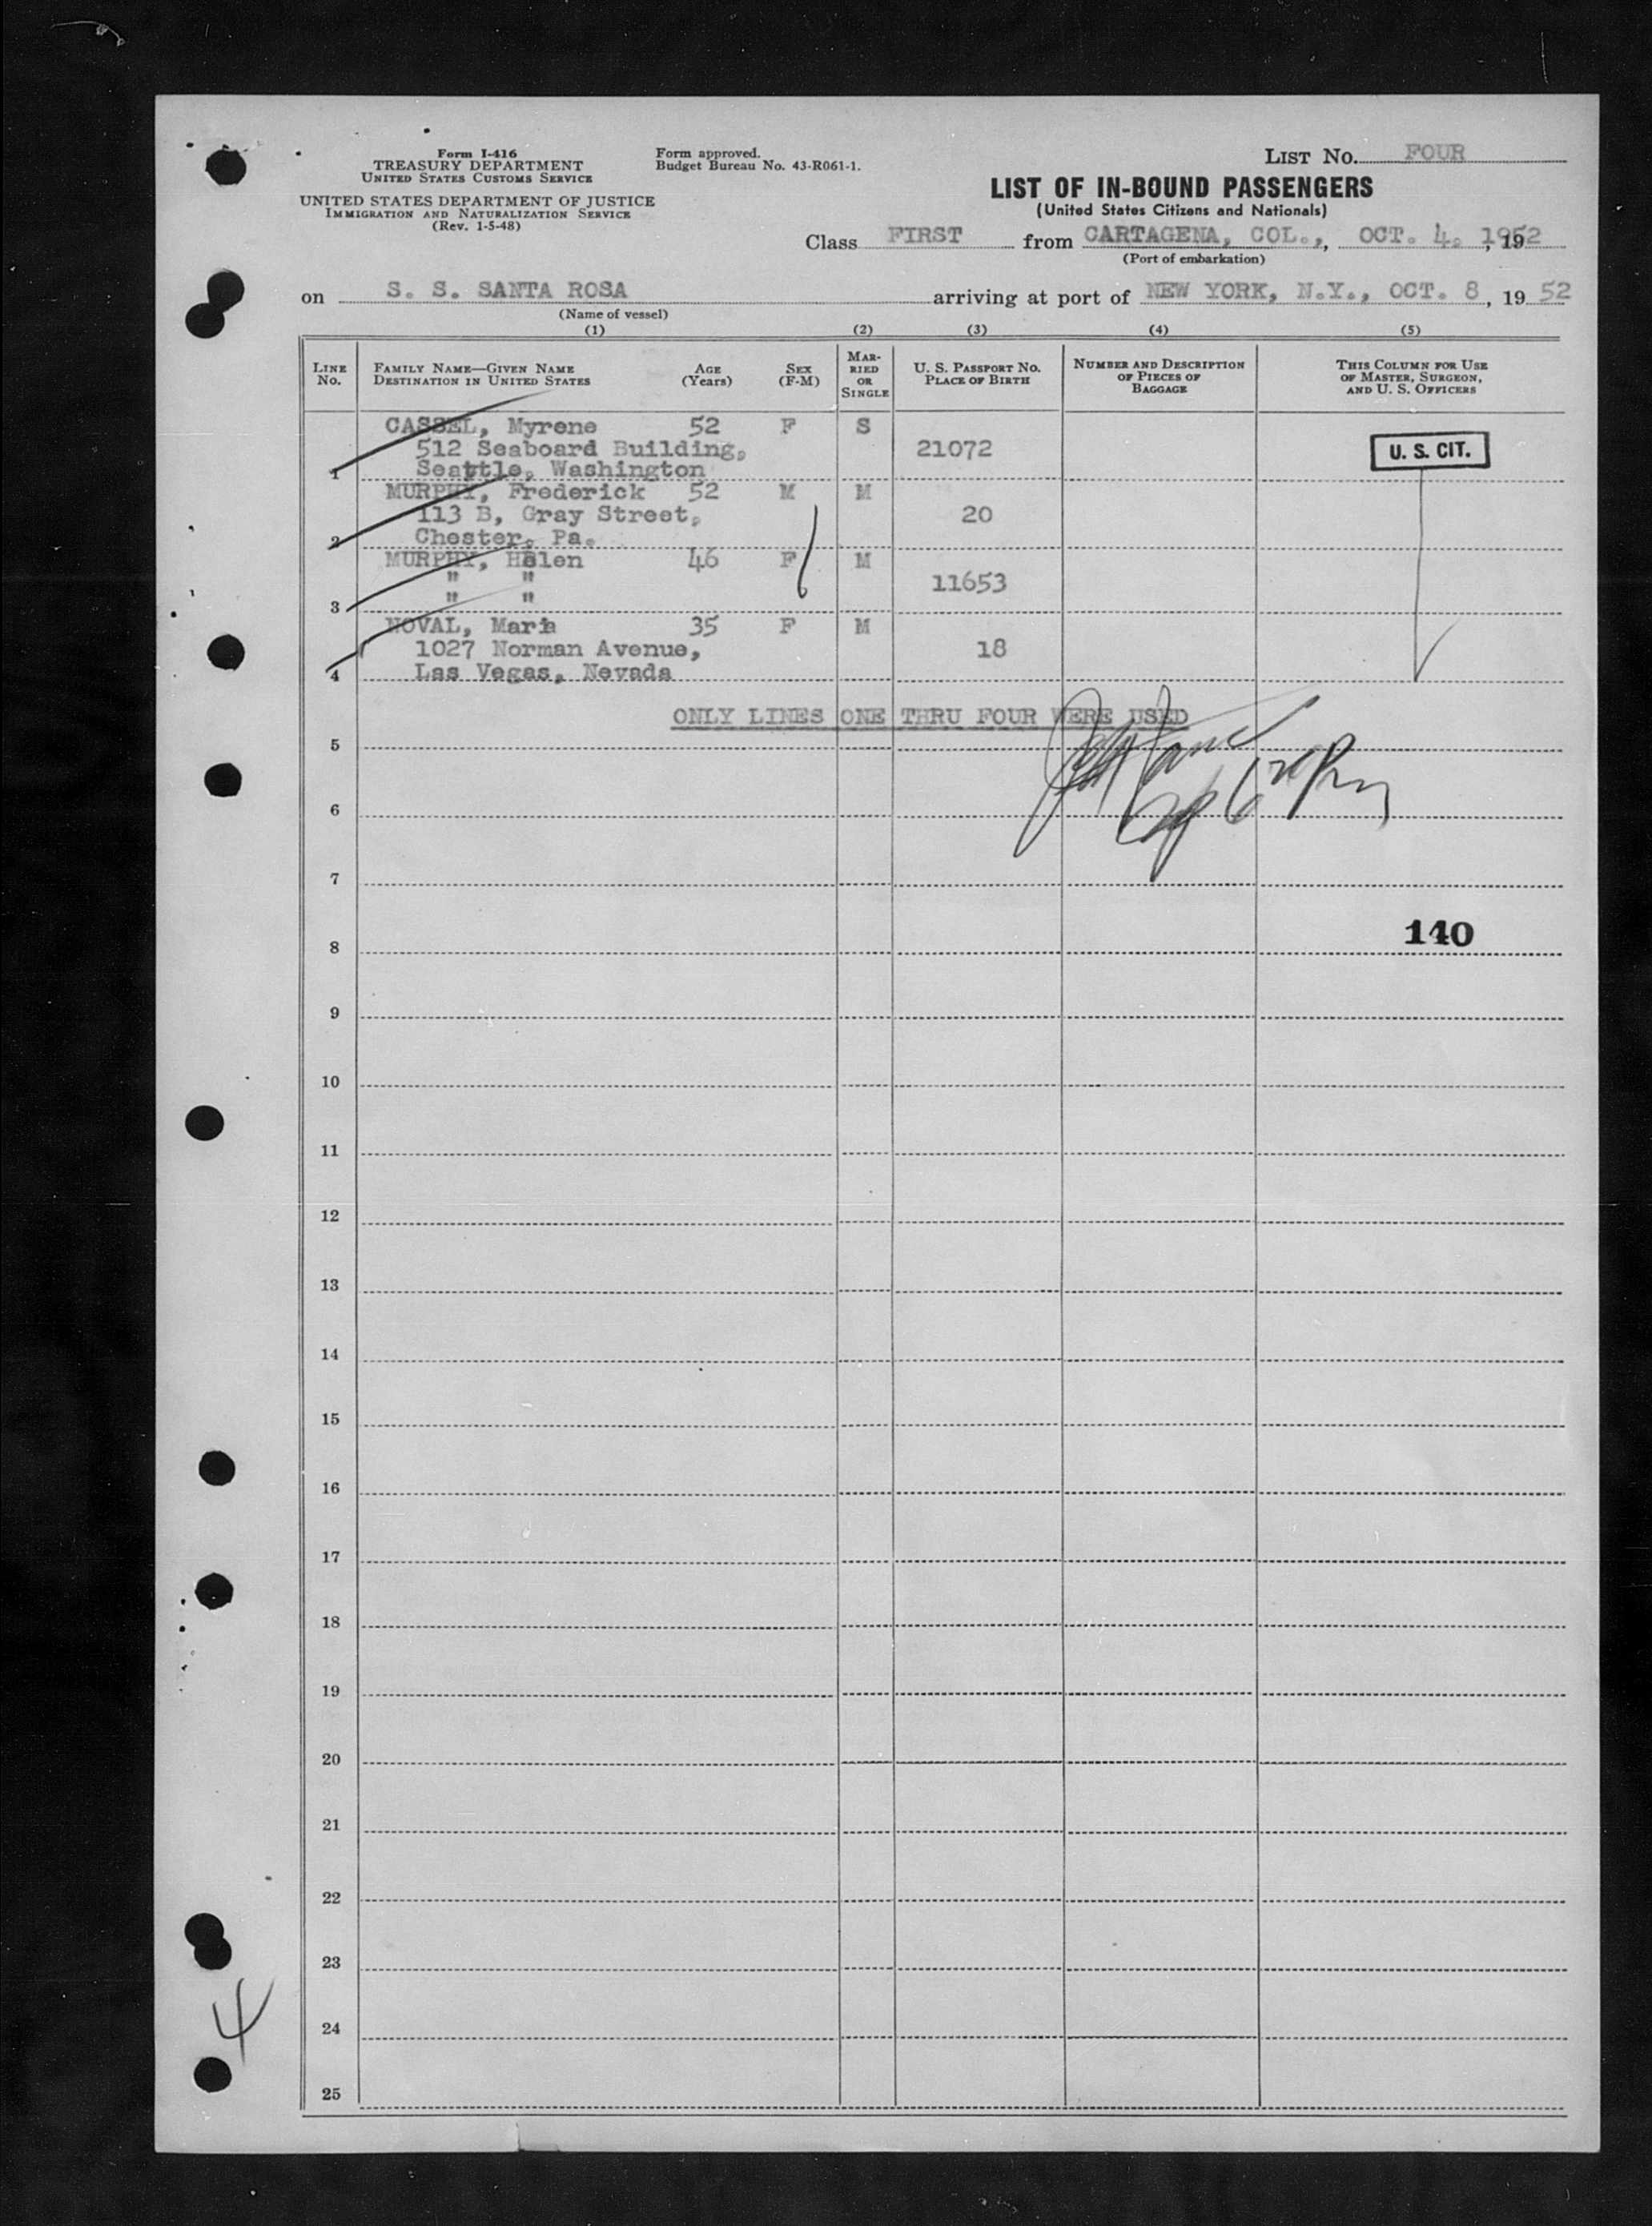 Form I-416
TREASURY DEPARTMENT
UNITED STATES CUSTOMS SERVICE
UNITED STATES DEPARTMENT OF JUSTICE
IMMIGRATION AND NATURALIZATION SERVICE
(Rev. 1-5-48)
Form approved.
Budget Bureau No. 43-R061-1.
LIST NO. FOUR
LIST OF IN-BOUND PASSENGERS
(United States Citizens and Nationals)
Class FIRST from CARTAGENA, COL., OCT. 4, 1952, 19
(Port of embarkation)
on S. S. SANTA ROSA arriving at port of NEW YORK, N.Y., OCT. 8, 19 52
(Name of vessel)
(1) (2) (3) (4) (5)
LINE NO. FAMILY NAME—GIVEN NAME DESTINATION IN UNITED STATES AGE (Years) SEX (F-M) MARRIED OR SINGLE U. S. PASSPORT NO. PLACE OF BIRTH NUMBER AND DESCRIPTION OF PIECES OF BAGGAGE THIS COLUMN FOR USE OF MASTER, SURGEON, AND U. S. OFFICERS
CASSEL, Myrene 52 F S
512 Seaboard Building, 21072 U. S. CIT.
1 Seattle, Washington
MURPHY, Frederick 52 M M
113 B, Gray Street, 20
2 Chester, Pa.
MURPHY, Helen 46 F M
" " 11653
3 " "
NOVAL, Maria 35 F M
1027 Norman Avenue, 18
4 Las Vegas, Nevada
ONLY LINES ONE THRU FOUR WERE USED
5
6
7
140
8
9
10
11
12
13
14
15
16
17
18
19
20
21
22
23
24
25
4